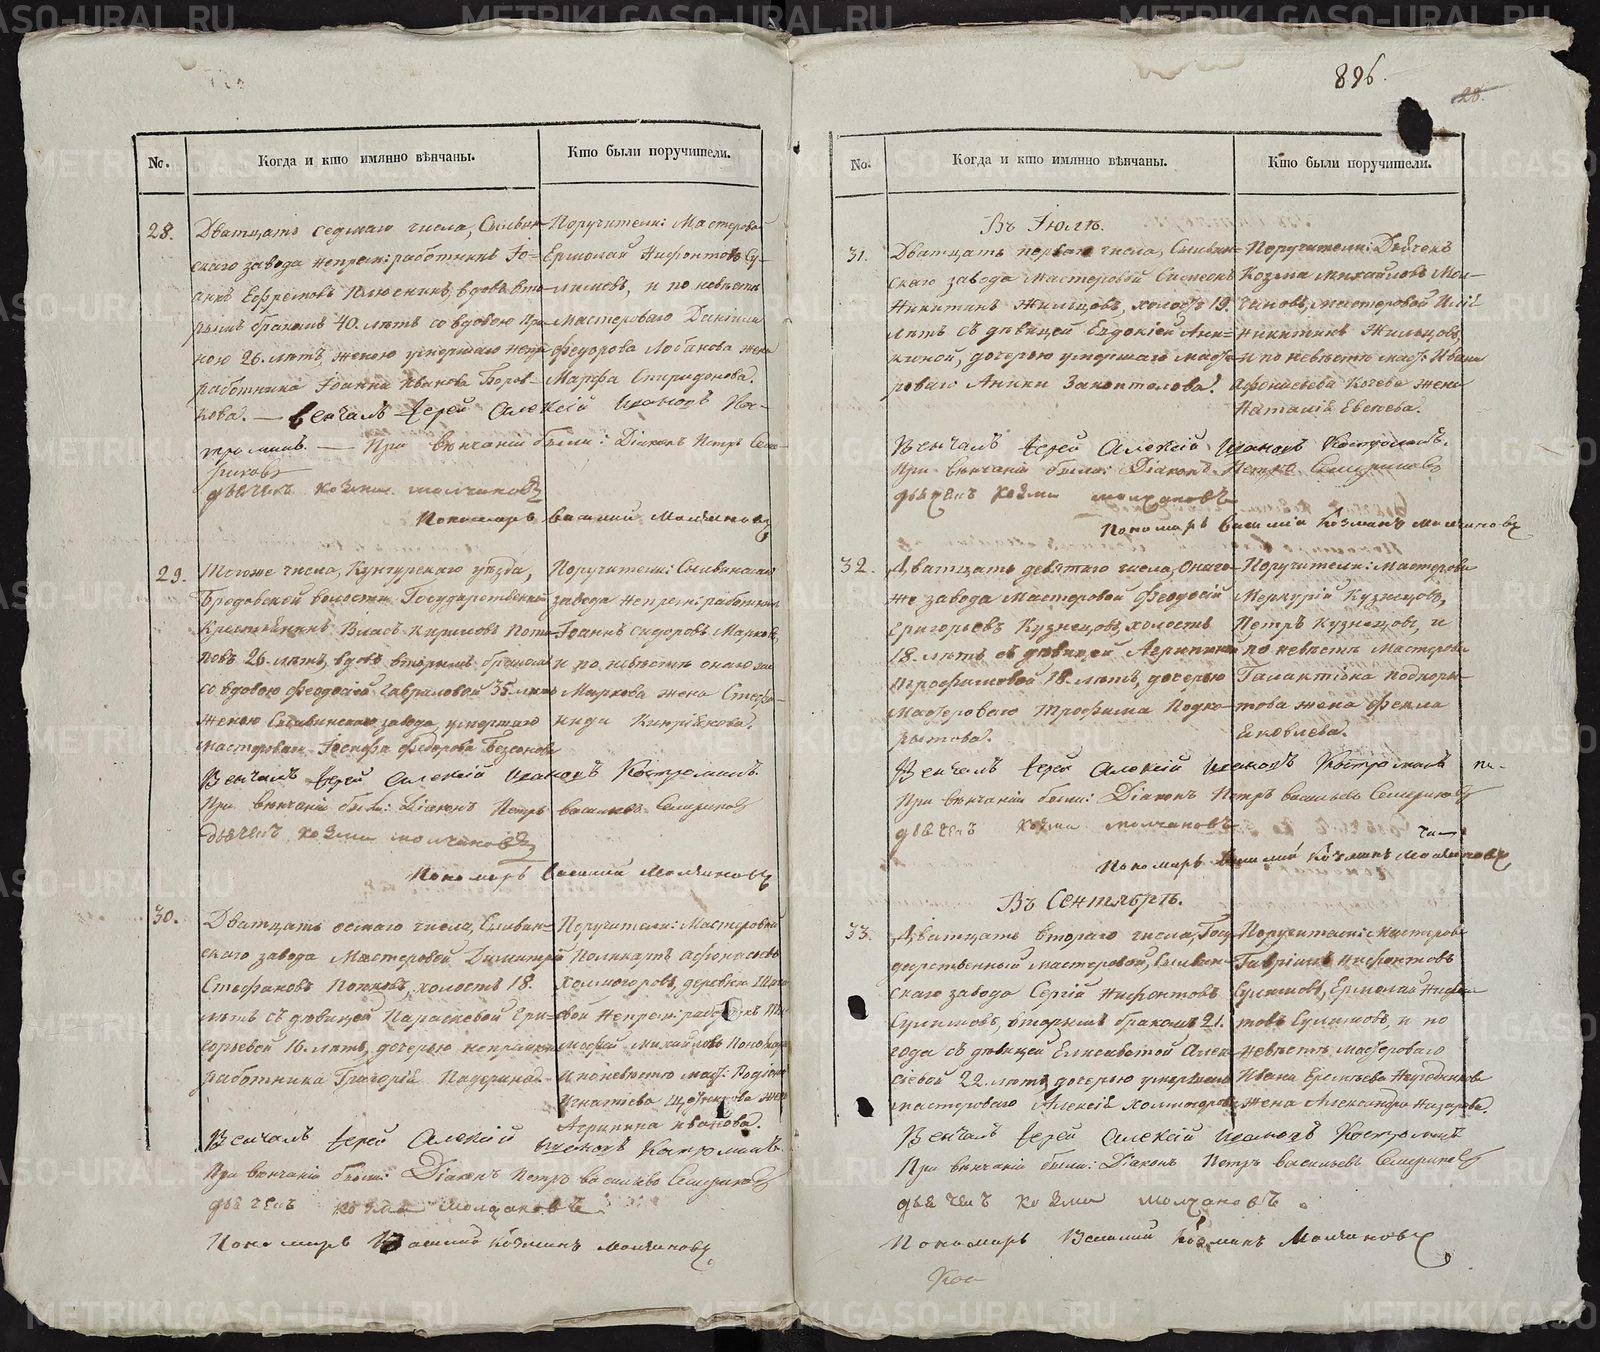 896.
28.
No.
Когда и кто имянно вѣнчаны.
Кто были поручители.
28.
Дватцать седмаго числа, Сылвин-
скаго завода непрем: работникъ Іо-
аннъ Ефремовъ вдовъ вто-
рымъ бракомъ 40. лѣтъ со вдовою
26. лѣтъ, женою умершаго непр:
работника Іоанна Иванова Боров-
кова. — Венчалъ Іерей Алексій Иоановъ Кос-
троминъ. — При вѣнчаніи были: Діаконъ Петръ Семе-
риковъ
дьячекъ козма молчановъ
Пономарь Василий Молчановъ
Поручители: Мастеровой
Ермолай Нифонтовъ Су-
лимовъ, и по невѣстѣ
мастероваго Даніила
Федорова Лобанова жена
Марфа Спиридонова.
29.
Тогоже числа, Кунгурскаго уѣзда,
Бродовской волости Государственной
Крестьянинъ Власъ Кириловъ Пота-
повъ 26. лѣтъ, вдовъ вторымъ бракомъ
со вдовою Феодосіей Гавриловой 35. лѣтъ
женою Сылвинскаго завода умершаго
мастероваго Іосифа Федорова Безсонова
Венчалъ Іерей Алексій Иоановъ Костроминъ.
При вѣнчаніи были: Діаконъ Петръ Васильевъ Семериковъ
дьячекъ козма молчановъ
Пономарь Василий Молчановъ
Поручители: Сылвинскаго
завода непрем: работникъ
Іоаннъ Сидоровъ Марковъ,
и по невѣстѣ онаго же
Маркова жена Стефа-
нида
30.
Дватцать осмаго числа, Сылвин-
скаго завода Мастеровой Димитрій
Стефановъ Поповъ, холостъ 18.
лѣтъ съ дѣвицей Параскевой Гри-
горьевой 16. лѣтъ, дочерью непремен:
работника Григорія Падерина.
Венчалъ Іерей Алексій Иоановъ Костроминъ
При вѣнчаніи были: Діаконъ Петръ Васильевъ Семериковъ
дьячекъ козма молчановъ
Пономарь Василий Козминъ Молчановъ
Поручители: Мастеровой
Поликарпъ Афонасьевъ
Холмогоровъ, деревни
непрем: работникъ Ти-
мофей Михайловъ
и по невѣстѣ маст: Родіона
Игнатіева жена
Агрипина Иванова.
No.
Когда и кто имянно вѣнчаны.
Кто были поручители.
Въ Іюлѣ.
31.
Дватцать перваго числа, Сылвин-
скаго завода мастеровой Симеонъ
Никитинъ Жильцовъ, холостъ 19.
лѣтъ съ дѣвицей Евдокіей Ани-
киной, дочерью умершаго масте-
роваго Аники Закоптелова.
Венчалъ Іерей Алексій Иоановъ Костроминъ.
При вѣнчаніи были: Діаконъ Петръ Семериковъ
дьячекъ козма молчановъ
Пономарь Василий Козминъ Молчановъ
Поручители: Дьячекъ
Козма Михайловъ Мол-
чановъ, мастеровой Илій
Никитинъ Жильцовъ,
и по невѣстѣ маст: Ивана
Афонасьева Кычева жена
Наталія Евсеева.
32.
Дватцать девятаго числа, Онаго-
же завода Мастеровой Феодосій
Григорьевъ Кузнецовъ, холостъ
18. лѣтъ съ дѣвицей Агрипиной
Трофимовой 18. лѣтъ, дочерью
мастероваго Трофима Подко-
рытова.
Венчалъ Іерей Алексій Иоановъ Костроминъ
При вѣнчаніи были: Діаконъ Петръ Васильевъ Семериковъ
дьячекъ козма молчановъ
Пономарь Василий Козминъ Молчановъ
Поручители: Мастеровые
Меркурій Кузнецовъ,
Петръ Кузнецовъ, и
по невѣстѣ Мастероваго
Галактіона Подкоры-
това жена Фекла
Яковлева.
Въ Сентябрѣ.
33.
Дватцать втораго числа, Госу-
дарственный мастеровой, Сылвин-
скаго завода Сергій Нифонтовъ
Сулимовъ, вторымъ бракомъ 21.
года съ дѣвицей Елисаветой Алек-
сіевой 22. лѣтъ, дочерью умершаго
мастероваго Алексія Холмогорова
Венчалъ Іерей Алексій Иоановъ Костроминъ
При вѣнчаніи были: Діаконъ Петръ Васильевъ Семериковъ
дьячекъ козма молчановъ.
Пономарь Василий Козминъ Молчановъ
Поручители: Мастеровые
Гавріилъ Нифонтовъ
Сулимовъ, Ермолай Нифон-
товъ Сулимовъ, и по
невѣстѣ мастероваго
Ивана Еремѣева
жена Александра Назарова.